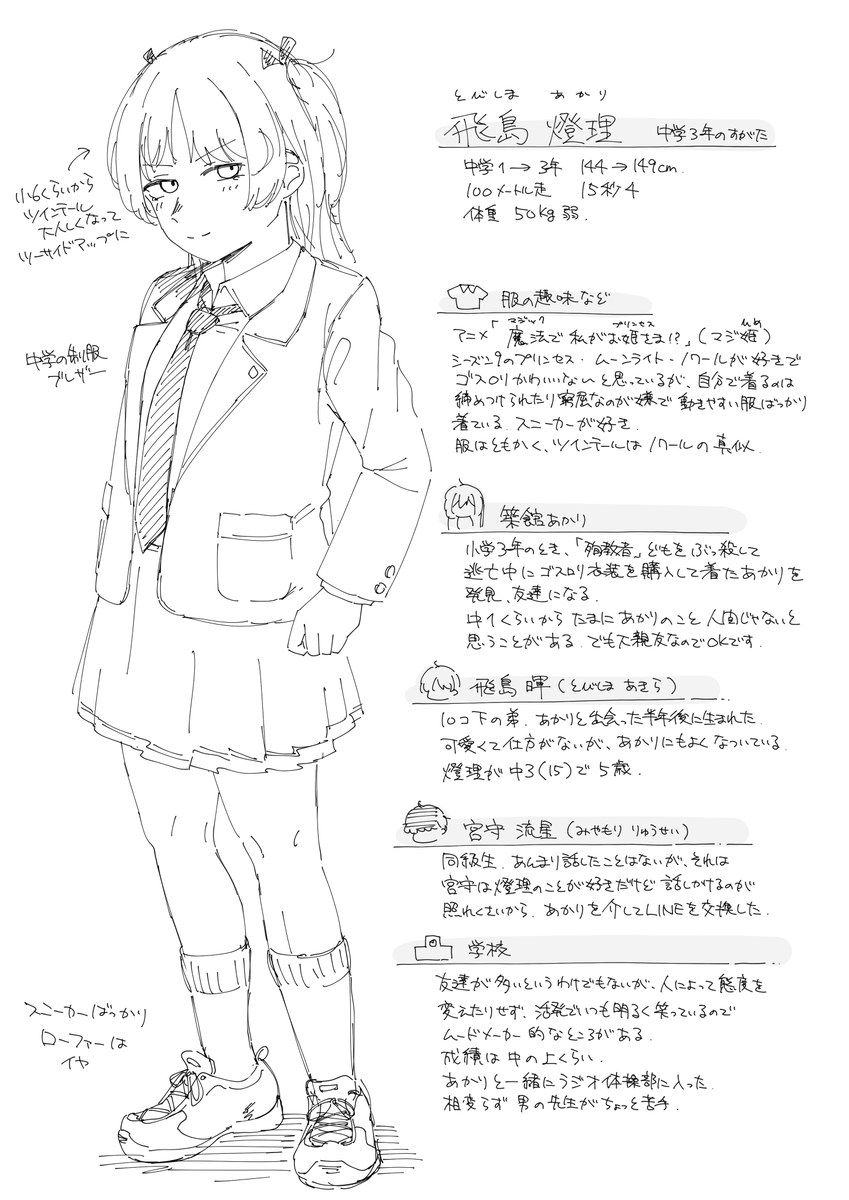 とびしま あかり
飛島 燈理 中学3年のすがた
中学1→3年 144→149cm.
100メートル走 15秒4
体重 50kg弱.
小6くらいから
ツインテール
大人しくなって
ツーサイドアップに
中学の制服
ブレザー
服の趣味など
マジック プリンセス ひめ
アニメ「魔法で私がお姫さま!?」(マジ姫)
シーズン9のプリンセス・ムーンライト・ノワールが好きで
ゴスロリかわいいなぁと思っているが、自分で着るのは
締めつけられたり窮屈なのが嫌で動きやすい服ばっかり
着ている.スニーカーが好き.
服はともかく、ツインテールはノワールの真似.
築館あかり
小学3年のとき、「殉教者」どもをぶっ殺して
逃亡中にゴスロリ衣装を購入して着たあかりを
発見、友達になる.
中1くらいからたまにあかりのこと人間じゃないと
思うことがある.でも大親友なのでOKです.
飛島 暉(とびしま あきら)
10コ下の弟.あかりと出会った半年後に生まれた.
可愛くて仕方がないが、あかりにもよくなついている.
燈理が中3(15)で5歳.
宮守 流星(みやもり りゅうせい)
同級生.あんまり話したことはないが、それは
宮守は燈理のことが好きだけど話しかけるのが
照れくさいから.あかりを介してLINEを交換した.
学校
友達が多いというわけでもないが、人によって態度を
変えたりせず、活発でいつも明るく笑っているので
ムードメーカー的なところがある.
成績は中の上くらい.
あかりと一緒にラジオ体操部に入った.
相変らず男の先生がちょっと苦手.
スニーカーばっかり
ローファーは
イヤ